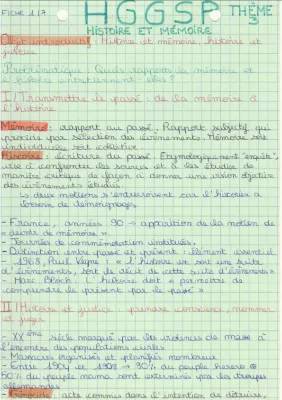 FICHE 1/7
HGGSP THÈME 3
HISTOIRE ET MÉMOIRE
Objet introductif : Histoire et mémoire, histoire et
justice
Problématique : Quels rapports la mémoire et
l'histoire entretiennent elles ?
I | Transmettre le passé : de la mémoire à
l'histoire
Mémoire : rapport au passé. Rapport subjectif qui
procède par sélection des événements. Mémoire soit
individuelle soit collective
Histoire : écriture du passé. Etymologiquement "enquête",
vise à confronter les sources et à les étudier de
manière critique de façon à donner une vision objective
des événements étudiés.
→ deux notions s'entrecroisent car l'historien a
besoin de témoignages
- France, années 90 → apparition de la notion de
« devoir de mémoire ».
- Journées de commémoration instituées.
- Distinction entre passé et présent : élément essentiel
- Paul Veyne : « l'histoire est une suite
d'événements, est le récit de cette suite d'événements »
- Marc Bloch : l'histoire doit « permettre de
comprendre le présent par le passé »
II | Histoire et justice : prendre conscience, nommer
et juger
- XXème siècle marqué par des violences de masse à
l'encontre des populations civiles
- Massacres organisés et planifiés nombreux
- Entre 1904 et 1908 → 80% du peuple herero et
50% du peuple nama sont exterminés par les troupes
allemandes
: acte commis dans l'intention de détruire,